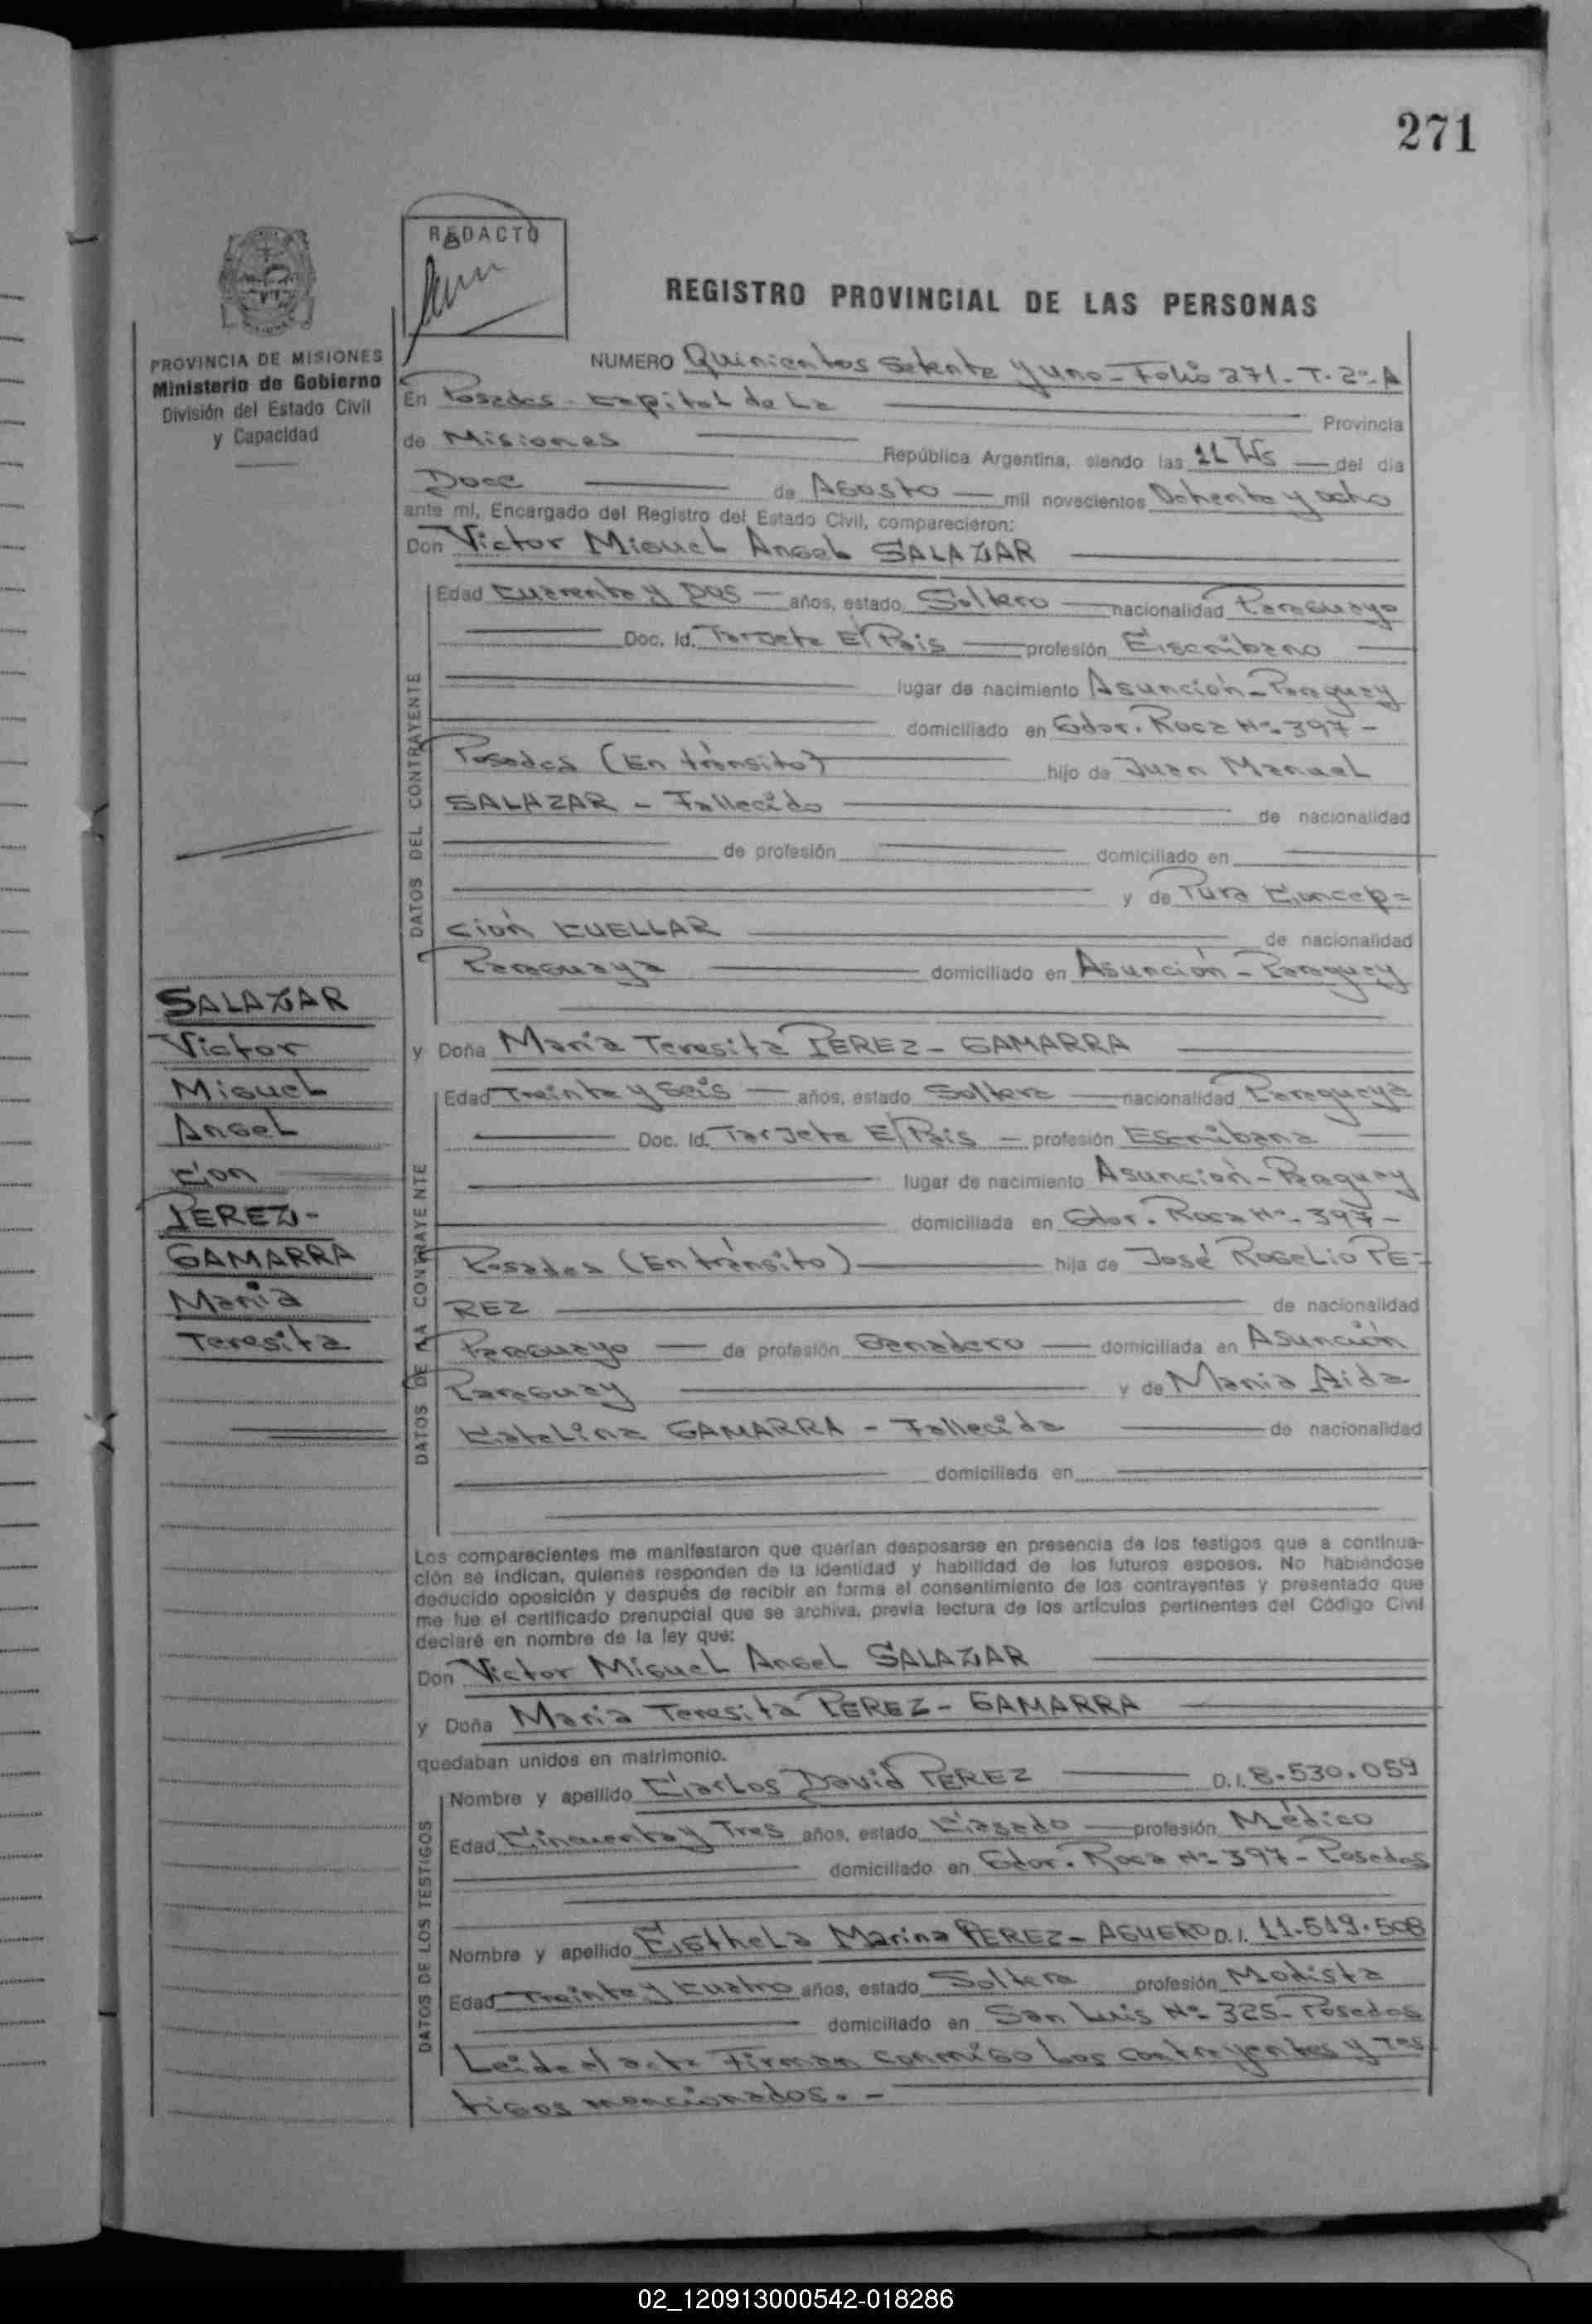 271
REDACTO
REGISTRO PROVINCIAL DE LAS PERSONAS
PROVINCIA DE MISIONES
Ministerio de Gobierno
División del Estado Civil
y Capacidad
NUMERO Quinientos Setenta y uno - Folio 271 - T. 2º - A
En Posadas - Capital de La Provincia
de Misiones República Argentina, siendo las 11 Hs del día
Doce de Agosto mil novecientos Ochenta y ocho
ante mí, Encargado del Registro del Estado Civil, comparecieron:
Don Victor Miguel Angel SALAZAR
DATOS DEL CONTRAYENTE
Edad Cuarenta y Dos años, estado Soltero nacionalidad Paraguayo
Doc. Id. Tarjeta E/Pais profesión Escribano
lugar de nacimiento Asunción - Paraguay
domiciliado en Gdor. Roca Nº 397 -
Posadas (En tránsito) hijo de Juan Manuel
SALAZAR - Fallecido de nacionalidad
de profesión domiciliado en
y de Pura Concep=
ción CUELLAR de nacionalidad
Paraguaya domiciliado en Asunción - Paraguay
SALAZAR
Victor
Miguel
Angel
con
PEREZ -
GAMARRA
Maria
Teresita
y Doña María Teresita PEREZ - GAMARRA
DATOS DE LA CONTRAYENTE
Edad Treinta y Seis años, estado Soltera nacionalidad Paraguaya
Doc. Id. Tarjeta E/Pais - profesión Escribana
lugar de nacimiento Asunción - Paraguay
domiciliada en Gdor. Roca Nº 397 -
Posadas (En tránsito) hija de José Rogelio PE-
REZ de nacionalidad
Paraguayo de profesión Ganadero domiciliada en Asunción
Paraguay y de Maria Aida
Catalina GAMARRA - Fallecida de nacionalidad
domiciliada en
Los comparecientes me manifestaron que querían desposarse en presencia de los testigos que a continua-
ción se indican, quienes responden de la identidad y habilidad de los futuros esposos. No habiéndose
deducido oposición y después de recibir en forma el consentimiento de los contrayentes y presentado que
me fue el certificado prenupcial que se archiva, previa lectura de los artículos pertinentes del Código Civil
declaré en nombre de la ley que:
Don Victor Miguel Angel SALAZAR
y Doña María Teresita PEREZ - GAMARRA
quedaban unidos en matrimonio.
DATOS DE LOS TESTIGOS
Nombre y apellido Carlos David PEREZ D.I. 8.530.059
Edad Cincuenta y Tres años, estado Casado profesión Médico
domiciliado en Gdor. Roca Nº 397 - Posadas
Nombre y apellido Esthela Marina PEREZ - AGUERO D.I. 11.519.508
Edad Treinta y Cuatro años, estado Soltera profesión Modista
domiciliado en San Luis Nº 325 - Posadas
Leida el acta Firman conmigo Los contrayentes y Tes
tigos mencionados. -
02_120913000542-018286